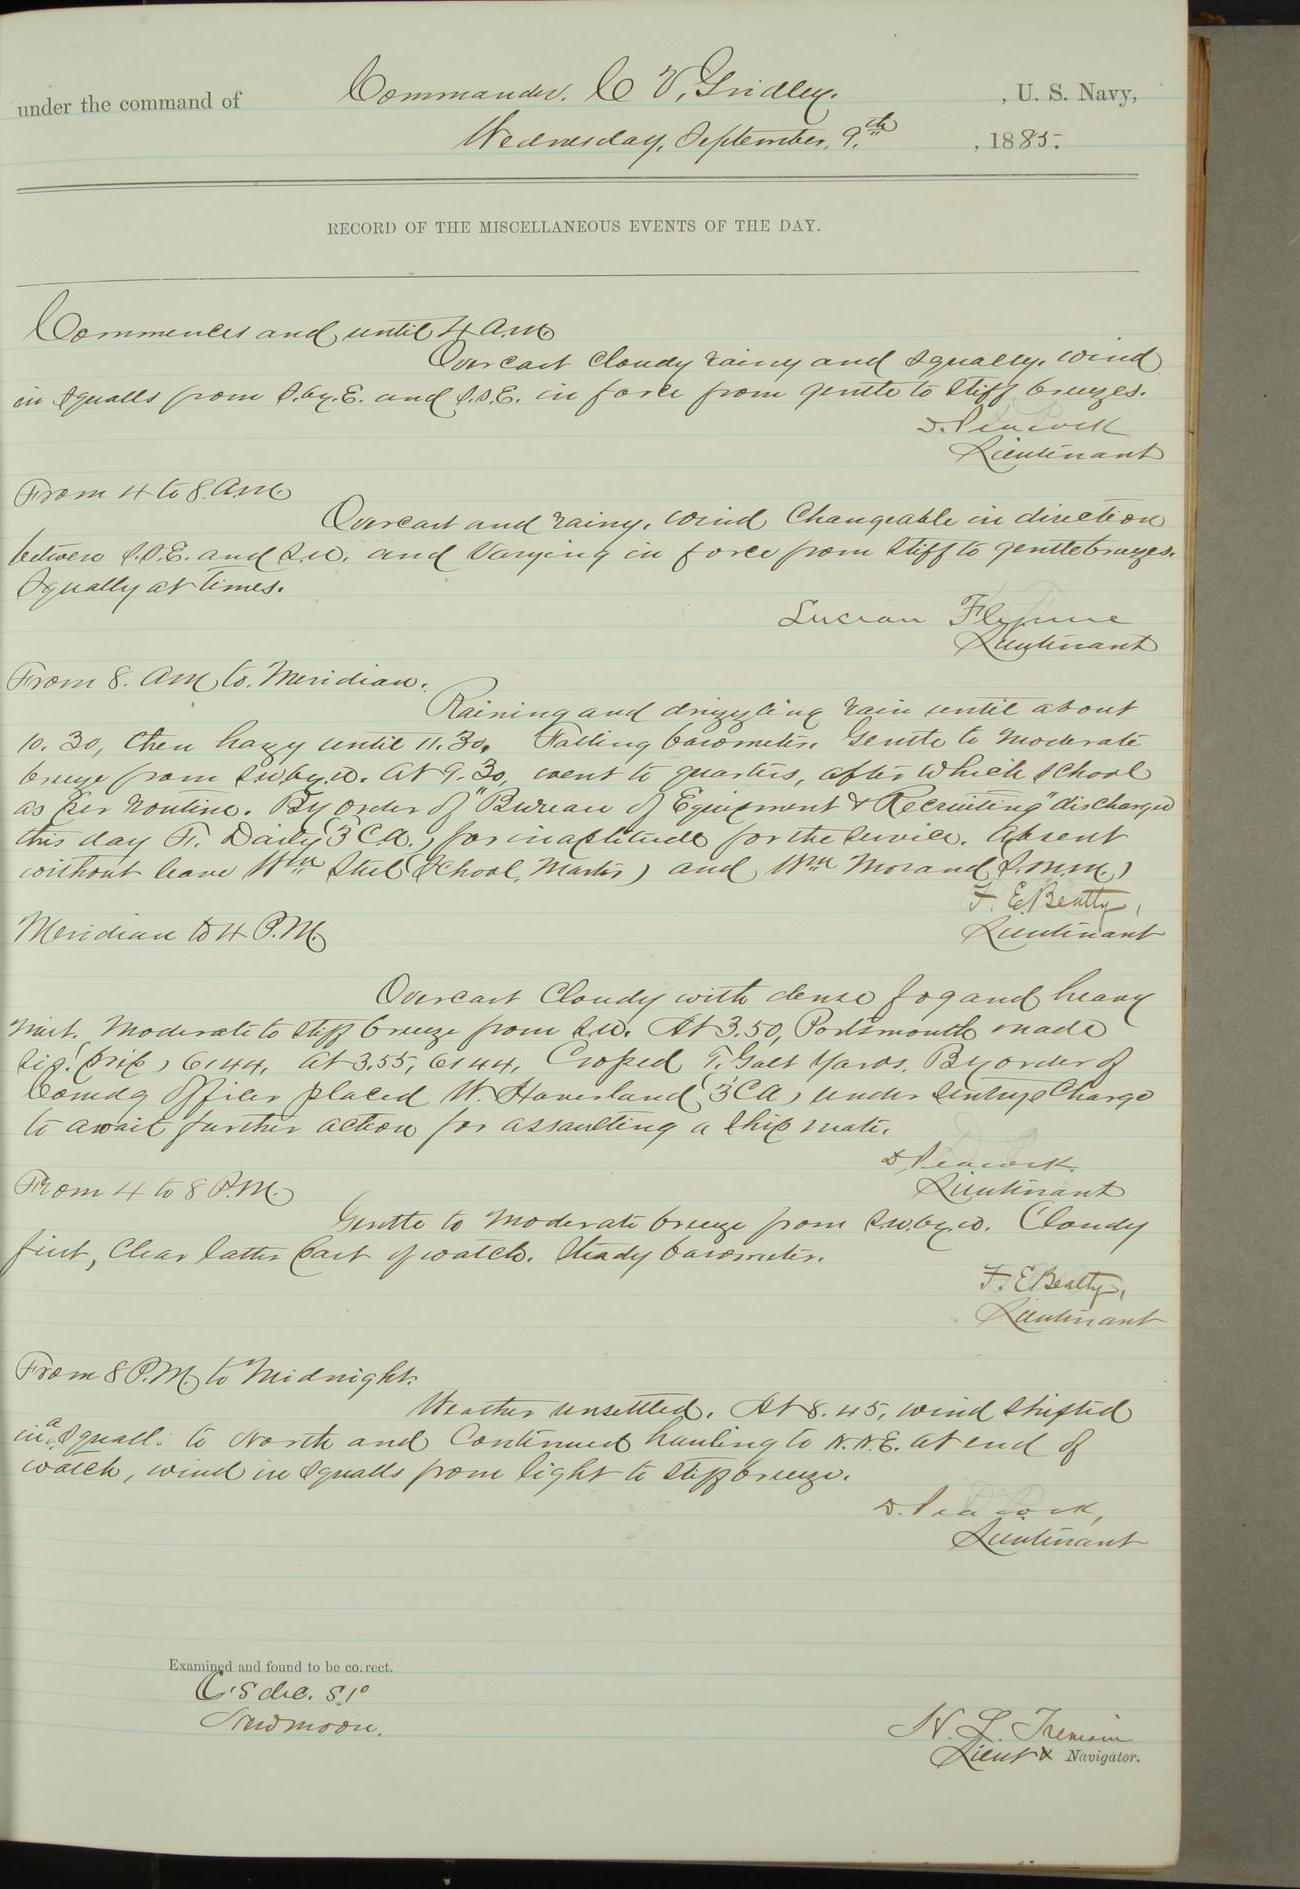 under the command of Commander. C V, Gridley. , U. S. Navy,
Wednesday, September, 9.th , 1885.
RECORD OF THE MISCELLANEOUS EVENTS OF THE DAY.
Commences and until 4 A.M.
Overcast Cloudy rainy and Squally. Wind
in Squalls from S.by.E. and S.S.E. in force from gentle to Stiff breezes.
D. Peacock
Lieutenant
From 4 to 8. A.M.
Overcast and rainy, Wind Changeable in direction
between S.S.E. and S.W. and Varying in force from Stiff to gentle breezes.
Squally at times.
Lucian Flynne
Lieutenant
From 8. AM to. Meridian.
Raining and drizzling rain until about
10.30, then hazy until 11.30. Falling barometer. Gentle to Moderate
breeze from S.W.by.W. At 9.30, went to quarters, after which School
as per routine. By order of "Bureau of Equipment & Recruiting" discharged
this day F. Daily (3 C B.) for inaptitude for the Service. Absent
without leave Wm Steel (School, Master) and Wm Morand (S.M.M.)
F. E. Beatty,
Lieutenant
Meridian to 4 P.M.
Overcast Cloudy with dense fog and heavy
Mist. Moderate to Stiff breeze from S.W. At 3.50, Portsmouth made
Sig. (prep) 6144, at 3.55, 6144, Crossed T. Galt Yards. By order of
Comdg Officer placed W. Haverland (3 C B) under Sentrys Charge
to await further action for assaulting a Ship mate.
D Peacock.
Lieutenant
From 4 to 8 P.M.
Gentle to Moderate breeze from S.W.by.W. Cloudy
first, Clear latter part of watch. Steady barometer.
F. E Beatty,
Lieutenant
From 8 P.M. to Midnight.
Weather unsettled. At 8.45, wind Shifted
in a Squall. to North and Continued hauling to N.N.E. at end of
watch, wind in Squalls from light to Stiff breeze.
D. Peacock,
Lieutenant
Examined and found to be correct.
C's dec. S 1°
New moon.
H. L.
Lieut & Navigator.